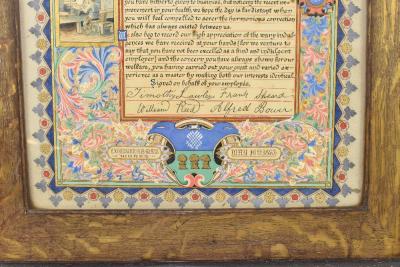 you have hitherto given to business, but noticing the recent im-
provement in your health, we hope the day is far distant when
you will feel compelled to sever the harmonious connection
which has always existed between us.
We also beg to record our high appreciation of the many indul-
gences we have received at your hands (for we venture to
say that you have not been excelled as a kind and indulgent
employer) and the concern you have always shown for our
welfare, you having carried out your great and varied exp-
erience as a master by making both our interests identical.
Signed on behalf of your employés,
Timothy Lawley Frank
William Reid Alfred Bower
WORKS MAY